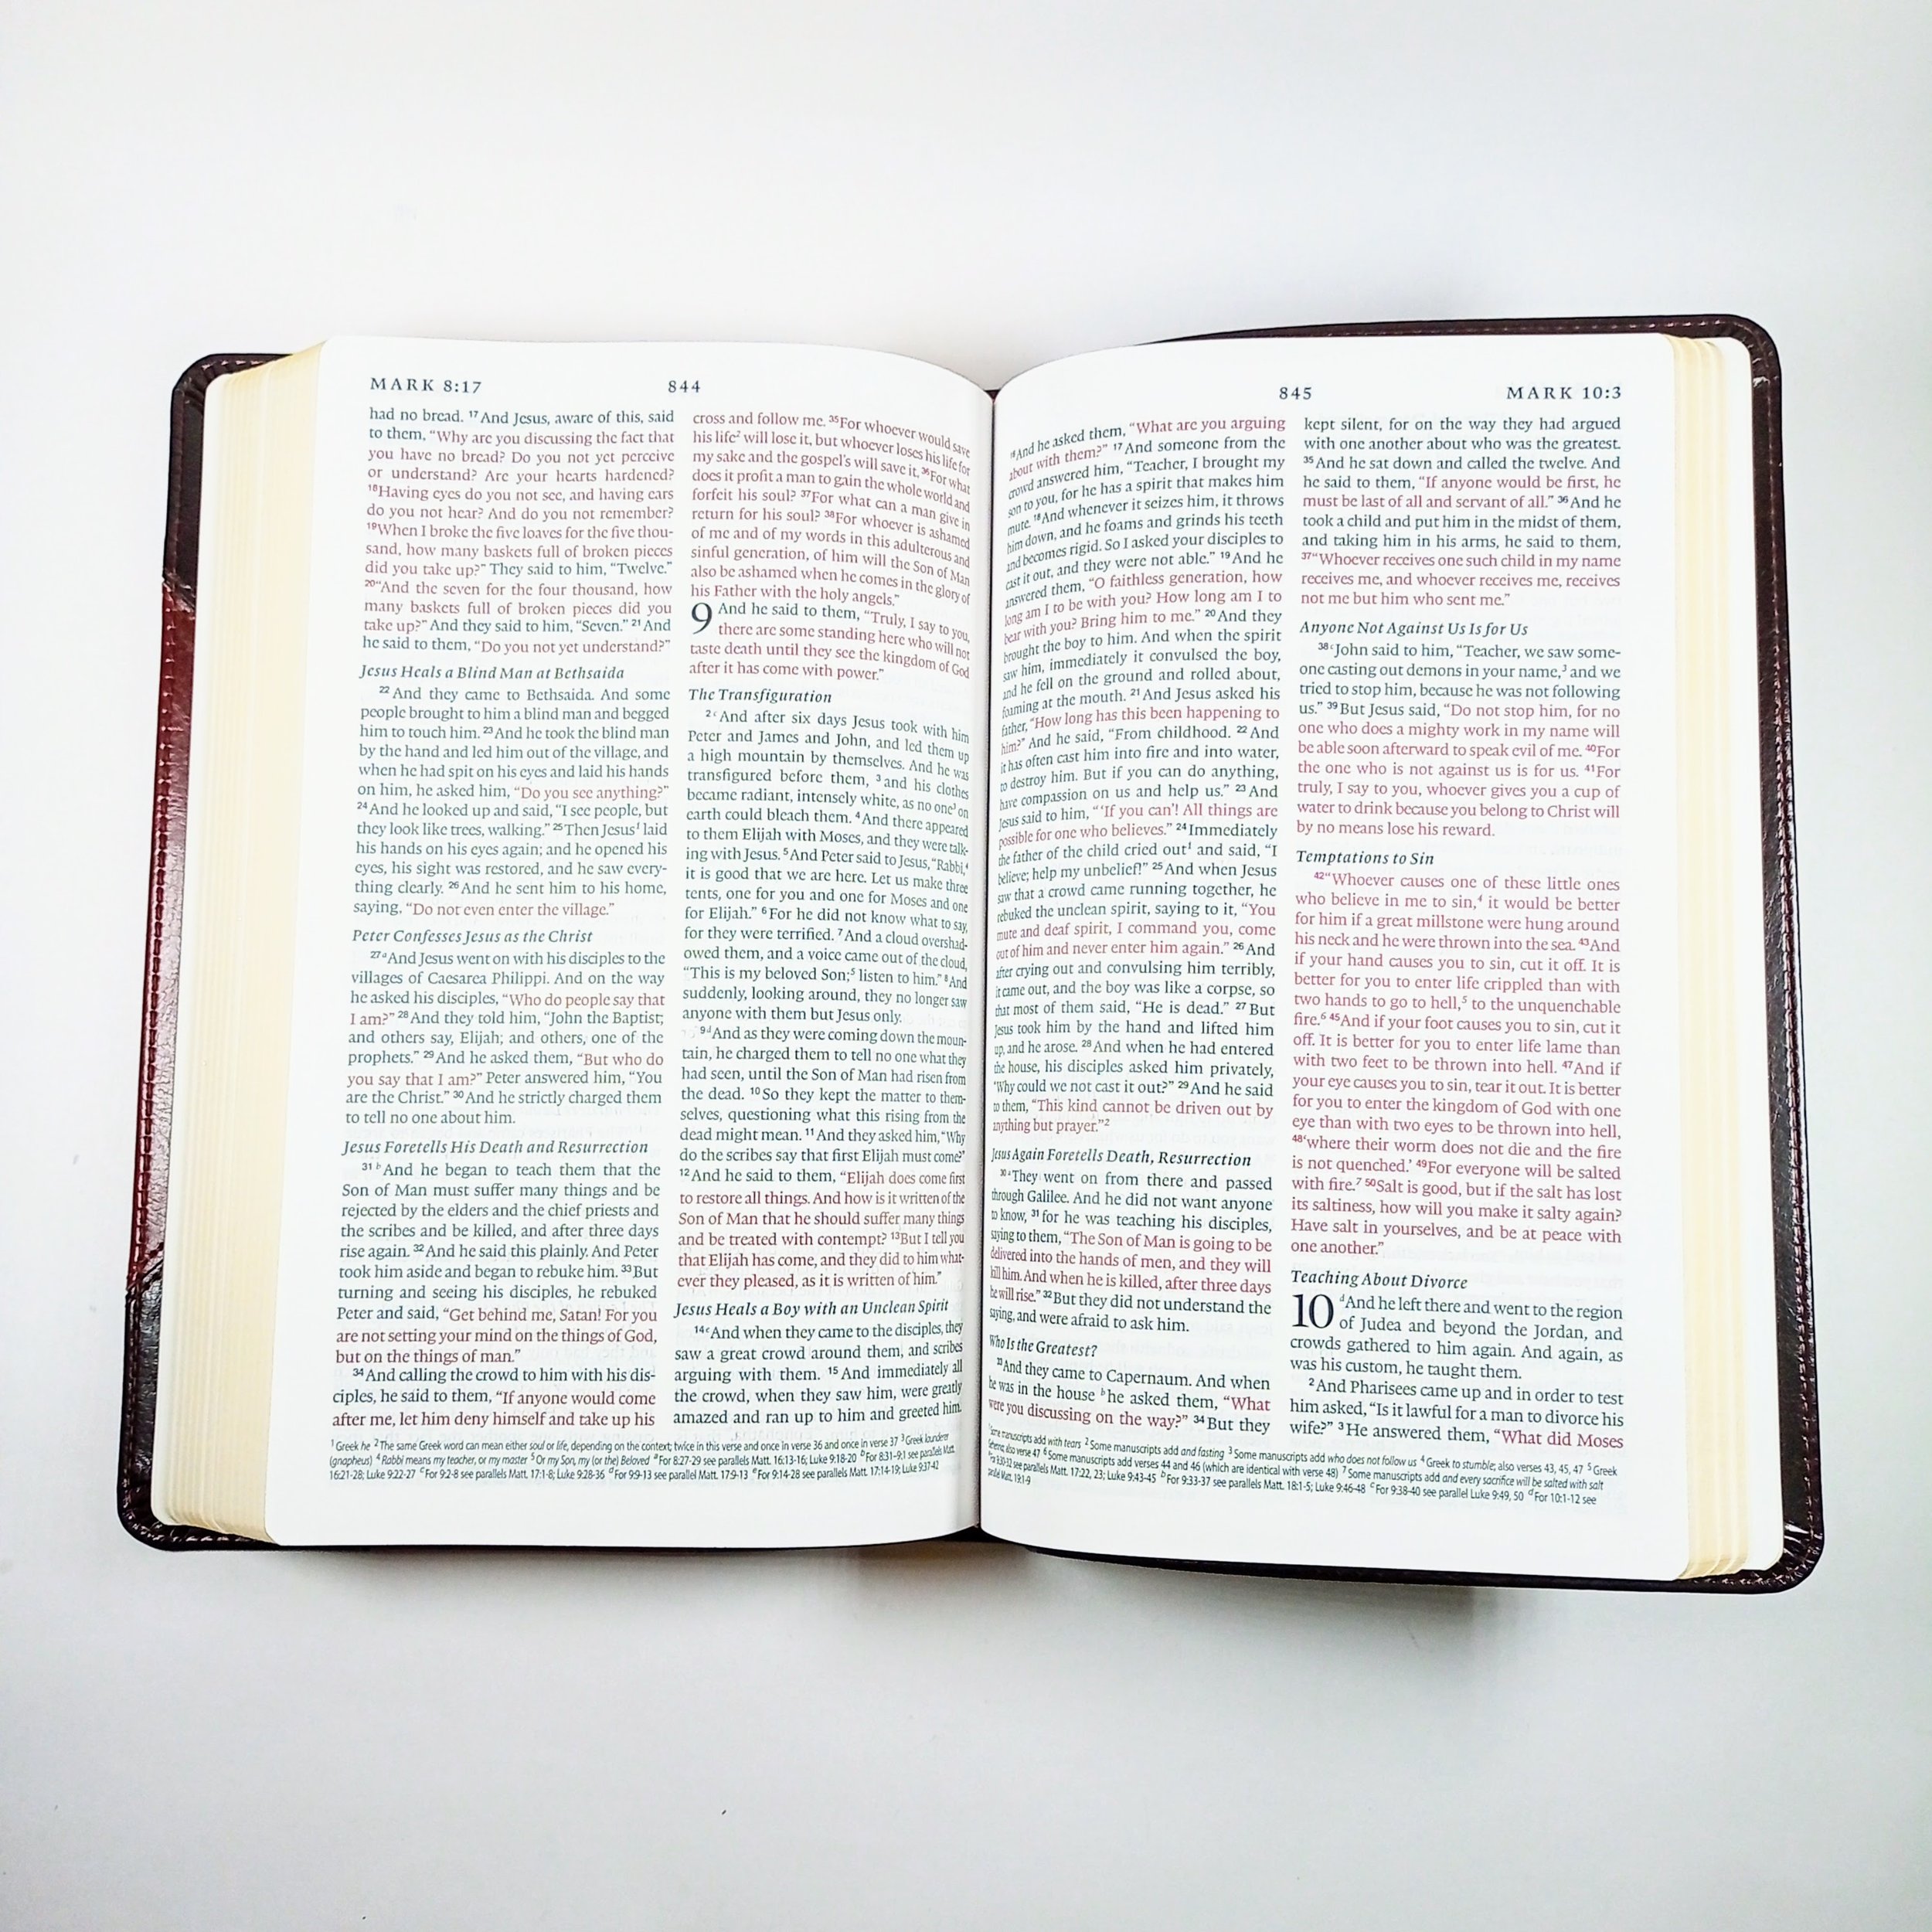 MARK 8:17
844
had no bread. 17 And Jesus, aware of this, said
to them, “Why are you discussing the fact that
you have no bread? Do you not yet perceive
or understand? Are your hearts hardened?
18 Having eyes do you not see, and having ears
do you not hear? And do you not remember?
19 When I broke the five loaves for the five thou-
sand, how many baskets full of broken pieces
did you take up?” They said to him, “Twelve.”
20 “And the seven for the four thousand, how
many baskets full of broken pieces did you
take up?” And they said to him, “Seven.” 21 And
he said to them, “Do you not yet understand?”
Jesus Heals a Blind Man at Bethsaida
22 And they came to Bethsaida. And some
people brought to him a blind man and begged
him to touch him. 23 And he took the blind man
by the hand and led him out of the village, and
when he had spit on his eyes and laid his hands
on him, he asked him, “Do you see anything?”
24 And he looked up and said, “I see people, but
they look like trees, walking.” 25 Then Jesus1 laid
his hands on his eyes again; and he opened his
eyes, his sight was restored, and he saw every-
thing clearly. 26 And he sent him to his home,
saying, “Do not even enter the village.”
Peter Confesses Jesus as the Christ
27 a And Jesus went on with his disciples to the
villages of Caesarea Philippi. And on the way
he asked his disciples, “Who do people say that
I am?” 28 And they told him, “John the Baptist;
and others say, Elijah; and others, one of the
prophets.” 29 And he asked them, “But who do
you say that I am?” Peter answered him, “You
are the Christ.” 30 And he strictly charged them
to tell no one about him.
Jesus Foretells His Death and Resurrection
31 b And he began to teach them that the
Son of Man must suffer many things and be
rejected by the elders and the chief priests and
the scribes and be killed, and after three days
rise again. 32 And he said this plainly. And Peter
took him aside and began to rebuke him. 33 But
turning and seeing his disciples, he rebuked
Peter and said, “Get behind me, Satan! For you
are not setting your mind on the things of God,
but on the things of man.”
34 And calling the crowd to him with his dis-
ciples, he said to them, “If anyone would come
after me, let him deny himself and take up his
cross and follow me. 35 For whoever would save
his life2 will lose it, but whoever loses his life for
my sake and the gospel’s will save it. 36 For what
does it profit a man to gain the whole world and
forfeit his soul? 37 For what can a man give in
return for his soul? 38 For whoever is ashamed
of me and of my words in this adulterous and
sinful generation, of him will the Son of Man
also be ashamed when he comes in the glory of
his Father with the holy angels.”
9 And he said to them, “Truly, I say to you,
there are some standing here who will not
taste death until they see the kingdom of God
after it has come with power.”
The Transfiguration
2 c And after six days Jesus took with him
Peter and James and John, and led them up
a high mountain by themselves. And he was
transfigured before them, 3 and his clothes
became radiant, intensely white, as no one3 on
earth could bleach them. 4 And there appeared
to them Elijah with Moses, and they were talk-
ing with Jesus. 5 And Peter said to Jesus, “Rabbi,4
it is good that we are here. Let us make three
tents, one for you and one for Moses and one
for Elijah.” 6 For he did not know what to say,
for they were terrified. 7 And a cloud overshad-
owed them, and a voice came out of the cloud,
“This is my beloved Son;5 listen to him.” 8 And
suddenly, looking around, they no longer saw
anyone with them but Jesus only.
9 d And as they were coming down the moun-
tain, he charged them to tell no one what they
had seen, until the Son of Man had risen from
the dead. 10 So they kept the matter to them-
selves, questioning what this rising from the
dead might mean. 11 And they asked him, “Why
do the scribes say that first Elijah must come?”
12 And he said to them, “Elijah does come first
to restore all things. And how is it written of the
Son of Man that he should suffer many things
and be treated with contempt? 13 But I tell you
that Elijah has come, and they did to him what-
ever they pleased, as it is written of him.”
Jesus Heals a Boy with an Unclean Spirit
14 e And when they came to the disciples, they
saw a great crowd around them, and scribes
arguing with them. 15 And immediately all
the crowd, when they saw him, were greatly
amazed and ran up to him and greeted him.
1 Greek he 2 The same Greek word can mean either soul or life, depending on the context; twice in this verse and once in verse 36 and once in verse 37 3 Greek launderer
(gnapheus) 4 Rabbi means my teacher, or my master 5 Or my Son, my (or the) Beloved a For 8:27-29 see parallels Matt. 16:13-16; Luke 9:18-20 b For 8:31–9:1 see parallels Matt.
16:21-28; Luke 9:22-27 c For 9:2-8 see parallels Matt. 17:1-8; Luke 9:28-36 d For 9:9-13 see parallel Matt. 17:9-13 e For 9:14-28 see parallels Matt. 17:14-19; Luke 9:37-42
845
MARK 10:3
16 And he asked them, “What are you arguing
about with them?” 17 And someone from the
crowd answered him, “Teacher, I brought my
son to you, for he has a spirit that makes him
mute. 18 And whenever it seizes him, it throws
him down, and he foams and grinds his teeth
and becomes rigid. So I asked your disciples to
cast it out, and they were not able.” 19 And he
answered them, “O faithless generation, how
long am I to be with you? How long am I to
bear with you? Bring him to me.” 20 And they
brought the boy to him. And when the spirit
saw him, immediately it convulsed the boy,
and he fell on the ground and rolled about,
foaming at the mouth. 21 And Jesus asked his
father, “How long has this been happening to
him?” And he said, “From childhood. 22 And
it has often cast him into fire and into water,
to destroy him. But if you can do anything,
have compassion on us and help us.” 23 And
Jesus said to him, “‘If you can’! All things are
possible for one who believes.” 24 Immediately
the father of the child cried out1 and said, “I
believe; help my unbelief!” 25 And when Jesus
saw that a crowd came running together, he
rebuked the unclean spirit, saying to it, “You
mute and deaf spirit, I command you, come
out of him and never enter him again.” 26 And
after crying out and convulsing him terribly,
it came out, and the boy was like a corpse, so
that most of them said, “He is dead.” 27 But
Jesus took him by the hand and lifted him
up, and he arose. 28 And when he had entered
the house, his disciples asked him privately,
“Why could we not cast it out?” 29 And he said
to them, “This kind cannot be driven out by
anything but prayer.”2
Jesus Again Foretells Death, Resurrection
30 a They went on from there and passed
through Galilee. And he did not want anyone
to know, 31 for he was teaching his disciples,
saying to them, “The Son of Man is going to be
delivered into the hands of men, and they will
kill him. And when he is killed, after three days
he will rise.” 32 But they did not understand the
saying, and were afraid to ask him.
Who Is the Greatest?
33 And they came to Capernaum. And when
he was in the house b he asked them, “What
were you discussing on the way?” 34 But they
kept silent, for on the way they had argued
with one another about who was the greatest.
35 And he sat down and called the twelve. And
he said to them, “If anyone would be first, he
must be last of all and servant of all.” 36 And he
took a child and put him in the midst of them,
and taking him in his arms, he said to them,
37 “Whoever receives one such child in my name
receives me, and whoever receives me, receives
not me but him who sent me.”
Anyone Not Against Us Is for Us
38 c John said to him, “Teacher, we saw some-
one casting out demons in your name,3 and we
tried to stop him, because he was not following
us.” 39 But Jesus said, “Do not stop him, for no
one who does a mighty work in my name will
be able soon afterward to speak evil of me. 40 For
the one who is not against us is for us. 41 For
truly, I say to you, whoever gives you a cup of
water to drink because you belong to Christ will
by no means lose his reward.
Temptations to Sin
42 “Whoever causes one of these little ones
who believe in me to sin,4 it would be better
for him if a great millstone were hung around
his neck and he were thrown into the sea. 43 And
if your hand causes you to sin, cut it off. It is
better for you to enter life crippled than with
two hands to go to hell,5 to the unquenchable
fire.6 45 And if your foot causes you to sin, cut it
off. It is better for you to enter life lame than
with two feet to be thrown into hell. 47 And if
your eye causes you to sin, tear it out. It is better
for you to enter the kingdom of God with one
eye than with two eyes to be thrown into hell,
48 ‘where their worm does not die and the fire
is not quenched.’ 49 For everyone will be salted
with fire.7 50 Salt is good, but if the salt has lost
its saltiness, how will you make it salty again?
Have salt in yourselves, and be at peace with
one another.”
Teaching About Divorce
10 d And he left there and went to the region
of Judea and beyond the Jordan, and
crowds gathered to him again. And again, as
was his custom, he taught them.
2 And Pharisees came up and in order to test
him asked, “Is it lawful for a man to divorce his
wife?” 3 He answered them, “What did Moses
1 Some manuscripts add with tears 2 Some manuscripts add and fasting 3 Some manuscripts add who does not follow us 4 Greek to stumble; also verses 43, 45, 47 5 Greek
Gehenna; also verse 47 6 Some manuscripts add verses 44 and 46 (which are identical with verse 48) 7 Some manuscripts add and every sacrifice will be salted with salt
a For 9:30-32 see parallels Matt. 17:22, 23; Luke 9:43-45 b For 9:33-37 see parallels Matt. 18:1-5; Luke 9:46-48 c For 9:38-40 see parallel Luke 9:49, 50 d For 10:1-12 see
parallel Matt. 19:1-9